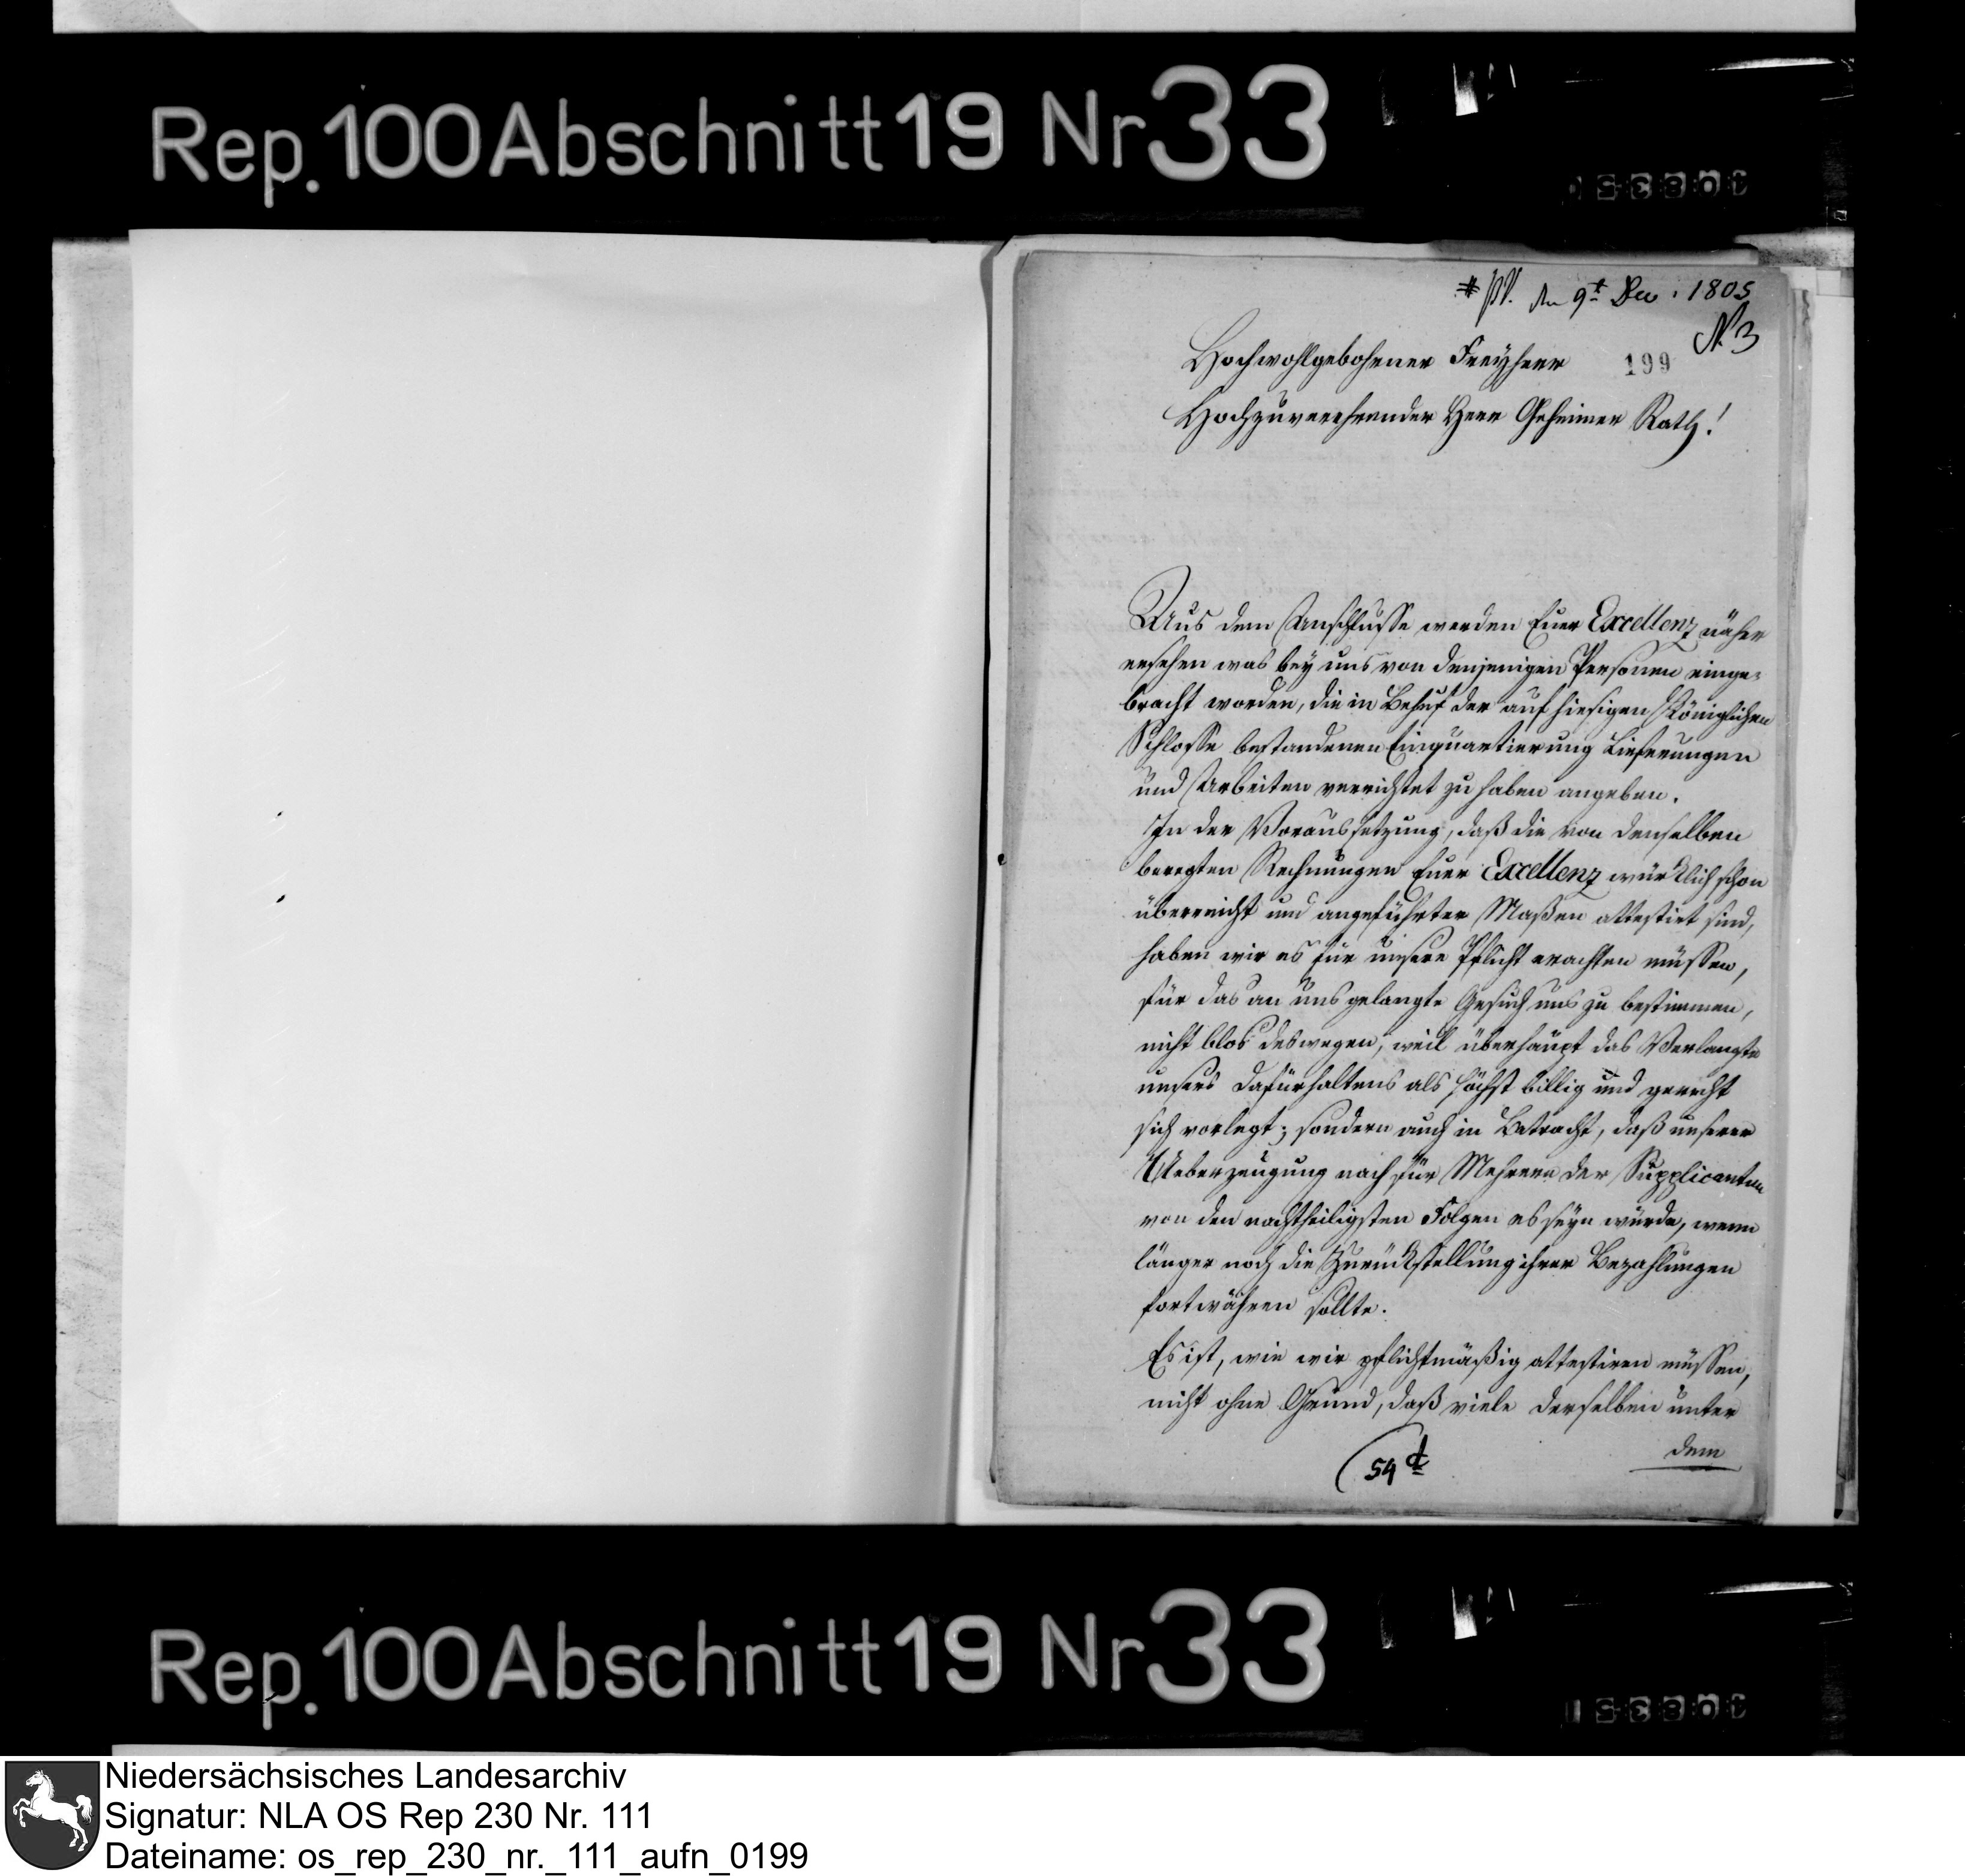 Rep. 100 Abschnitt 19 Nr 33
pl. den 9t Dec: 1805
N. 3
199
Hochwohlgebohrner Freyherr
Hochzuverehrender Herr Geheimer Rath!
Aus dem Anschlusse werden Euer Excellenz näher
ersehen was bey uns von denjenigen Personen einge-
bracht worden, die in Behuf der auf hiesigen Königlichen
Schlosse bestandenen Einquartierung Lieferungen
und Arbeiten verrichtet zu haben angeben.
In der Voraussetzung, daß die von denselben
beregten Rechnungen Euer Excellenz würklich schon
überreicht und angeführter Maßen attestirt sind,
haben wir es für unsere Pflicht erachten müssen,
für das an uns gelangte Gesuch uns zu bestimmen,
nicht blos deswegen, weil überhaupt das Verlangte
unsers Dafürhaltens als höchst billig und gerecht
sich vorlegt; sondern auch in Betracht, daß unserer
Ueberzeugung nach für Mehrere der Supplicanten
von den nachtheiligsten Folgen es seyn würde, wenn
länger noch die Zurückstellung ihrer Bezahlungen
fortwähren sollte.
Es ist, wie wir pflichtmäßig attestiren müssen,
nicht ohne Grund, daß viele derselben unter
dem
54 d
Rep. 100 Abschnitt 19 Nr 33
Niedersächsisches Landesarchiv
Signatur: NLA OS Rep 230 Nr. 111
Dateiname: os_rep_230_nr._111_aufn_0199